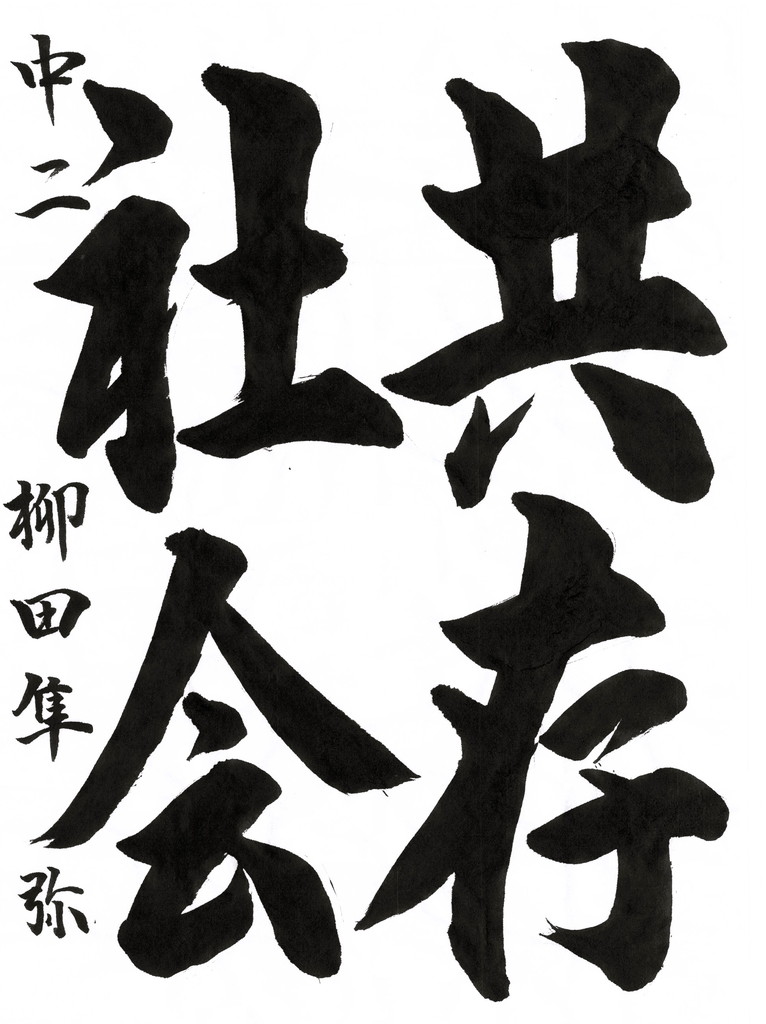 共存
社会
中二 柳田隼弥